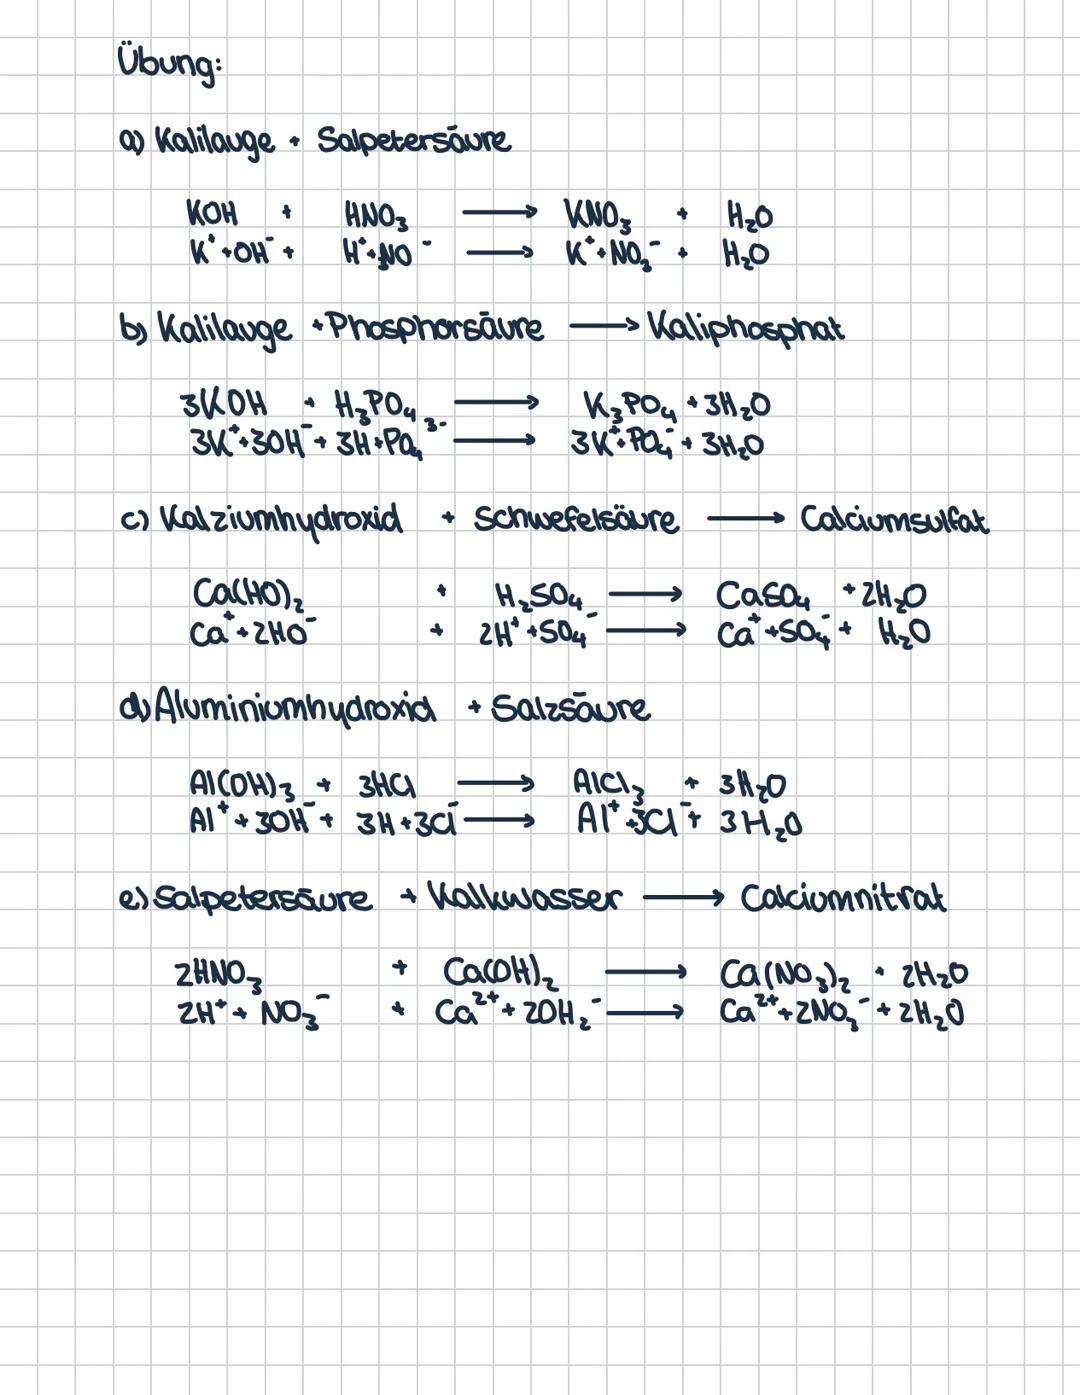 Übung:
a) Kalilauge + Salpetersäure
KOH + HNO₃ → KNO₃ + H₂O
K⁺+OH⁻ + H⁺+₃NO⁻ → K⁺+NO₃⁻ + H₂O
b) Kalilauge + Phosphorsäure → Kaliphosphat
3KOH + H₃PO₄ → K₃PO₄ + 3H₂O
3K⁺+3OH⁻+ 3H+PO₄³⁻ → 3K⁺+PO₄⁻ + 3H₂O
c) Kalziumhydroxid + Schwefelsäure → Calciumsulfat
Ca(HO)₂ + H₂SO₄ → CaSO₄ + 2H₂O
Ca⁺+2HO⁻ + 2H⁺+SO₄⁻ → Ca⁺+SO₄⁻+ H₂O
d) Aluminiumhydroxid + Salzsäure
Al(OH)₃ + 3HCl → AlCl₃ + 3H₂O
Al⁺+3OH⁻+ 3H+3Cl⁻ → Al⁺+3Cl⁻+ 3H₂O
e) Salpetersäure + Kalkwasser → Calciumnitrat
2HNO₃ + Ca(OH)₂ → Ca(NO₃)₂ + 2H₂O
2H⁺+ NO₃⁻ + Ca²⁺+2OH₂⁻ → Ca²⁺+2NO₃⁻+2H₂O